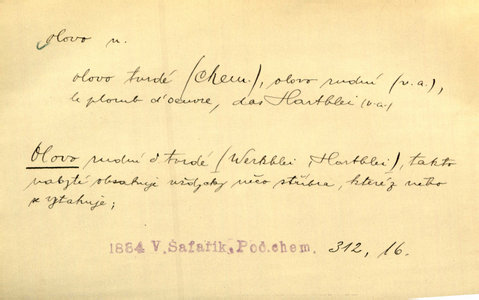 olovo n.
olovo tvrdé (chem.), olovo rudní (v.a.),
le plomb d'oeuvre, das Hartblei (v.a.)
Olovo rudní č tvrdé (Werkblei Hartblei), takto
nabyté obsahuje vždycky něco stříbra, které z něho
se vytahuje;
1884 V. Šafařík, Poč. chem. 312, 16.